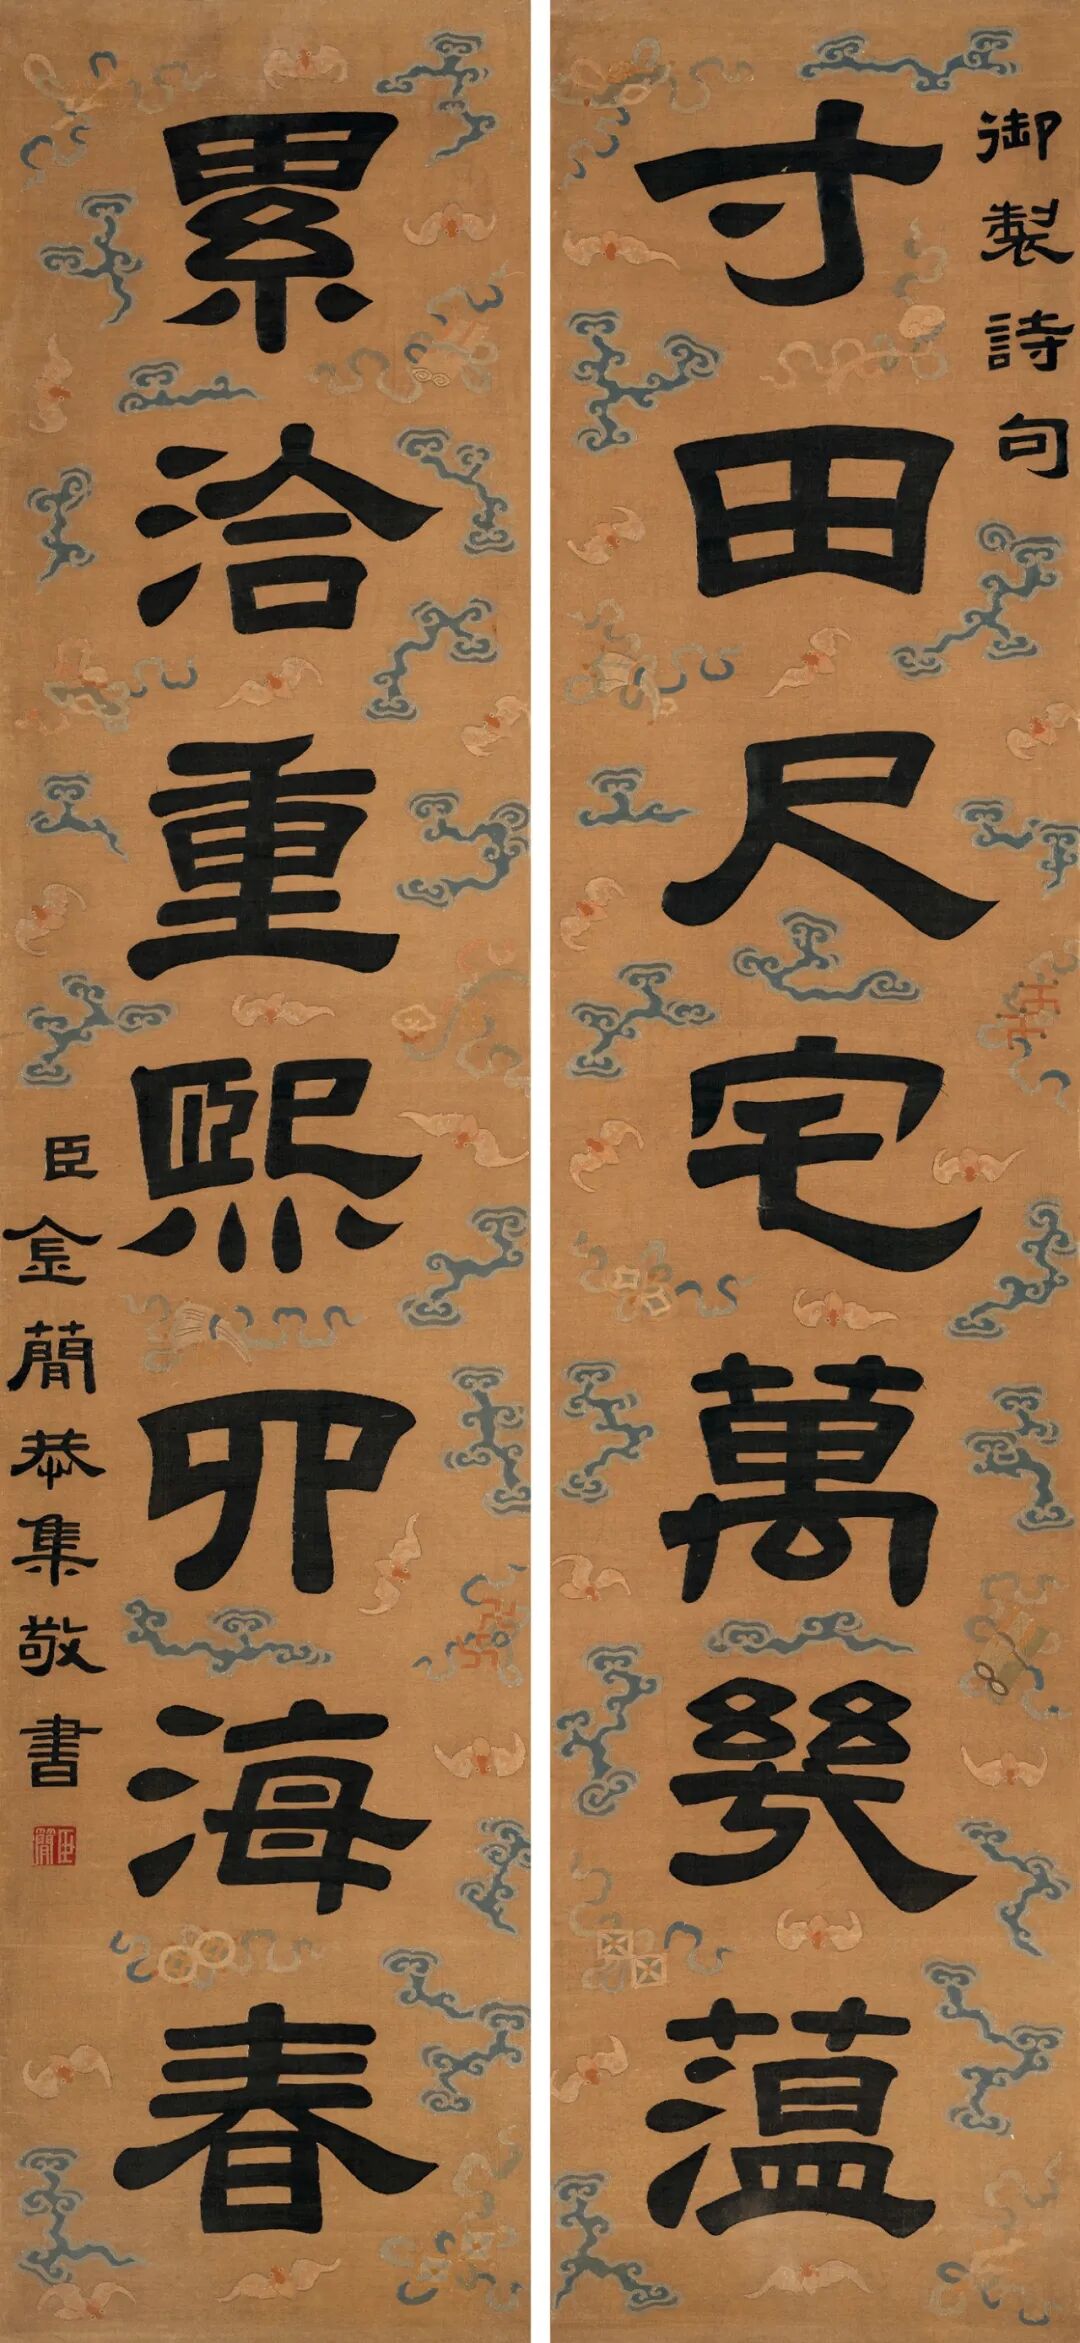 御製詩句
寸田尺宅萬幾蘊
累洽重熙四海春
臣金簡恭集敬書
臣簡